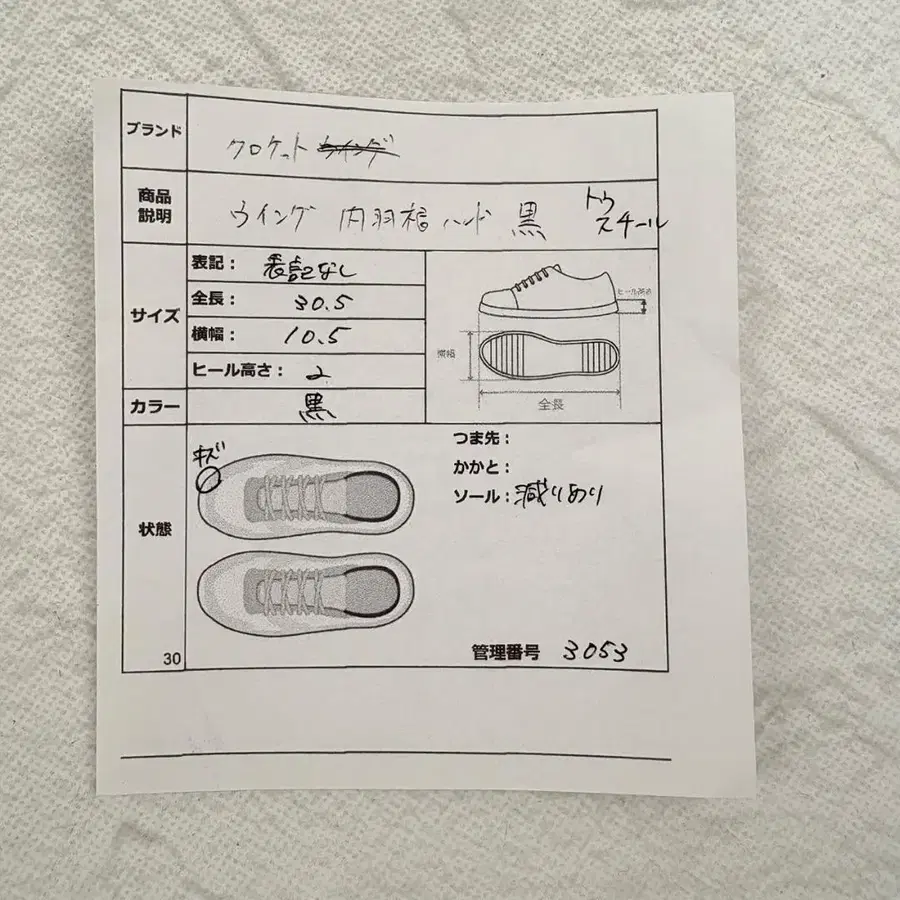 ブランド クロケット ウイング
商品説明 ウイング 内羽根 ハンド 黒 トゥスチール
サイズ
表記： 表記なし
全長： 30.5
横幅： 10.5
ヒール高さ： 2
ヒール高さ
横幅
全長
カラー 黒
状態
キズ
つま先：
かかと：
ソール：減りあり
30
管理番号 3053